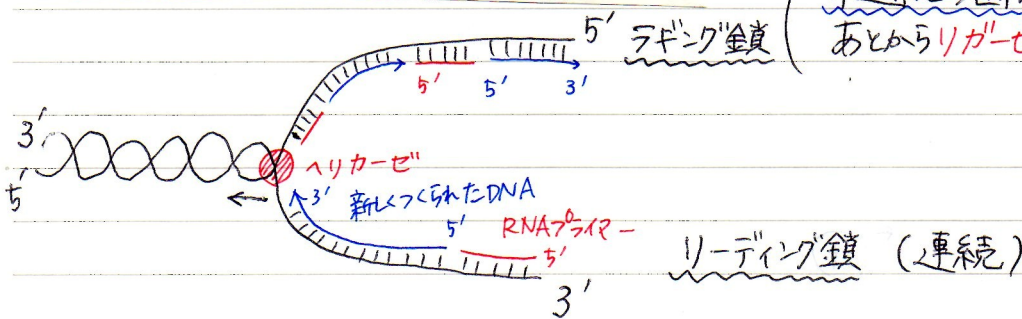 5' ラギング鎖 (
あとからリガーゼ
5' 5' 3'
3'
5'
ヘリカーゼ
←
3' 新しくつくられたDNA
5' RNAプライマー
5'
リーディング鎖 (連続)
3'